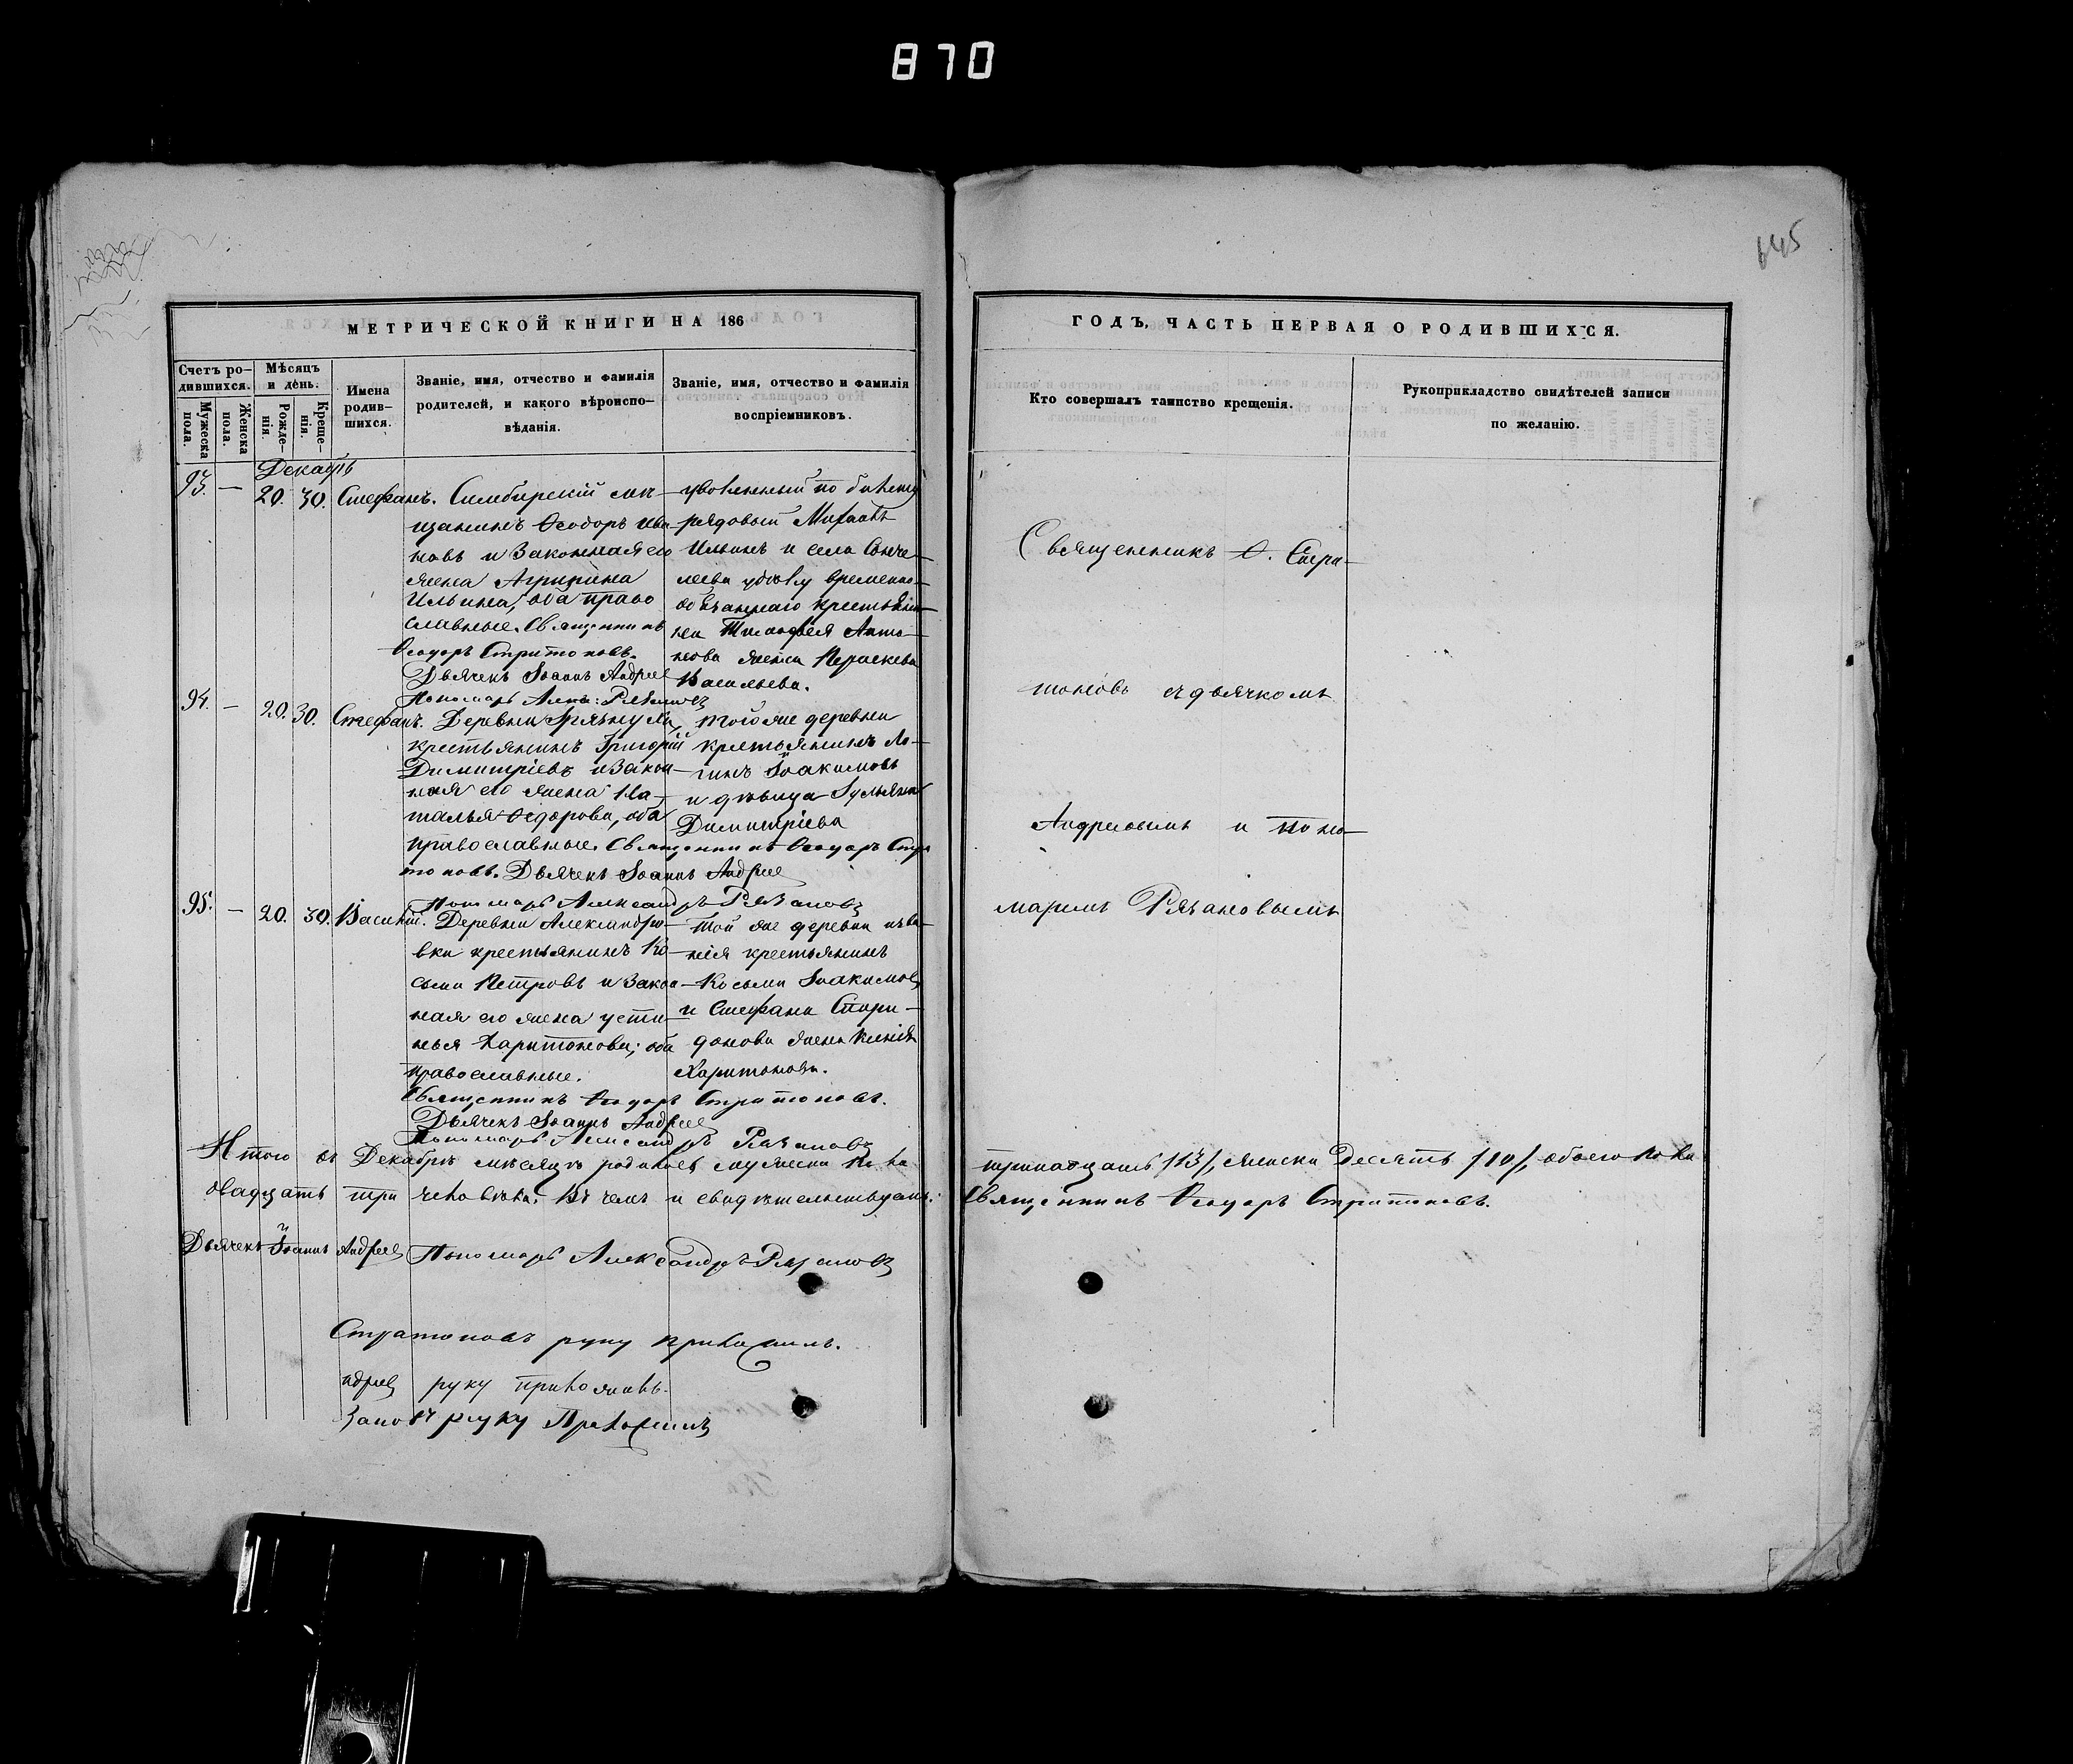 870
645
МЕТРИЧЕСКОЙ КНИГИ НА 186
ГОДЪ, ЧАСТЬ ПЕРВАЯ О РОДИВШИХСЯ.
Счетъ ро-
дившихся.
Мужеска пола.
Женска пола.
Мѣсяцъ
и день.
Рожде-
нія.
Креще-
нія.
Имена
родив-
шихся.
Званіе, имя, отчество и фамилія
родителей, и какого вѣроиспо-
вѣданія.
Званіе, имя, отчество и фамилія
воспріемниковъ.
Кто совершалъ таинство крещенія.
Рукоприкладство свидѣтелей записи
по желанію.
Декабрь
93. — 20. 30. Стефанъ.
Симбирскій мѣ-
щанинъ Ѳеодоръ Ива-
новъ и законная его
жена Агрипина
Ильина, оба право
славные. Священникъ
Ѳеодоръ Стратоновъ.
Дьячекъ Іоаннъ Андреев
Пономарь Алек: Рязановъ
уволенный по билету
рядовый Михаилъ
Ильинъ и села
временно-
обязаннаго крестьяни-
на Тимофея Анто-
нова жена Параскева
Васильева.
94. — 20. 30. Стефанъ.
Деревни
крестьянинъ Григорій
Димитріевъ и закон-
ная его жена На-
талья Ѳедорова, оба
православные. Священникъ Ѳеодоръ Стра
тоновъ. Дьячекъ Іоаннъ Андреев
Пономарь Александръ Рязановъ
тойже деревни
крестьянинъ Ло-
гинъ Іоакимовъ
и дѣвица Іульянія
Димитріева
95. — 20. 30. Василій.
Деревни Александро-
вки крестьянинъ Ко-
сьма Петровъ и закон-
ная его жена Усти-
нья Харитонова; оба
православные.
Священникъ Ѳеодоръ Стратоновъ.
Дьячекъ Іоаннъ Андреев
Пономарь Александръ Рязановъ
той же деревни
крестьянинъ
Косьма Іоакимовъ
и Стефана Спири-
донова жена Ксенія
Харитонова.
Священникъ Ѳ. Стра-
тоновъ съ дьячкомъ
Андреевымъ и поно-
маремъ Рязановымъ
Итого въ Декабрѣ мѣсяцѣ родилось мужеска пола
тринадцать /13/, женска десять /10/, обоего пола
двадцать три человѣка. Въ чемъ и свидѣтельствуемъ:
Священникъ Ѳеодоръ Стратоновъ.
Дьячекъ Іоаннъ Андреев Пономарь Александръ Рязановъ
Стратоновъ руку приложилъ.
ндреев руку приложилъ.
зановъ руку Приложилъ